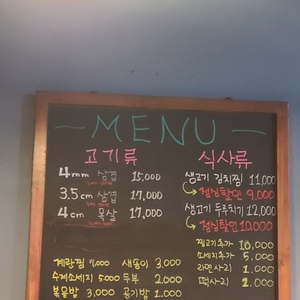 MENU
고기류
4mm 삼겹 15,000
3.5cm 삼겹 17,000
4cm 목살 17,000
계란찜 4,000 새송이 3,000
수제소세지 5,000 두부 2,000
볶음밥 3,000 공기밥 1,000
식사류
생고기 김치찌 11,000
점심할인 9,000
생고기 두루치기 12,000
점심할인 10,000
찌고기추가 10,000
소세지추가 5,000
라면사리 1,000
떡사리 2,000